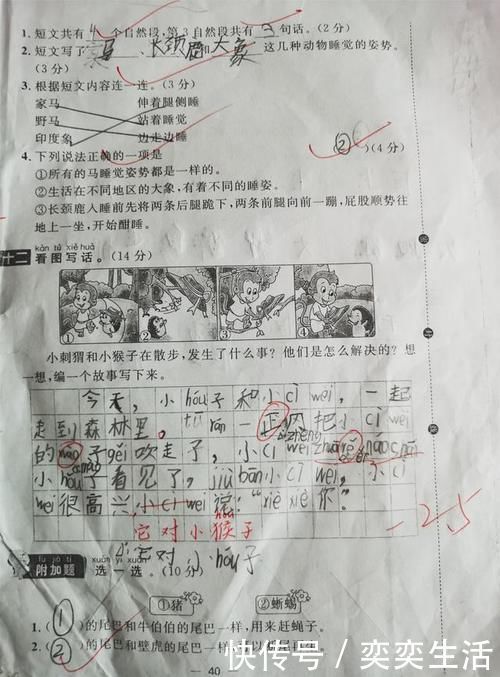 1.短文共有4个自然段,第3自然段共有3句话。(2分)
2.短文写了马、长颈鹿和大象这几种动物睡觉的姿势。
(3分)
3.根据短文内容连一连。(3分)
家马 伸着腿侧睡
野马 站着睡觉
印度象 边走边睡
4.下列说法正确的一项是 (②)(4分)
①所有的马睡觉姿势都是一样的。
②生活在不同地区的大象,有着不同的睡姿。
③长颈鹿入睡前先将两条后腿跪下,两条前腿向前一蹦,屁股顺势往
地上一坐,开始酣睡。
kàn tú xiě huà
十二 看图写话。(14分)
① ② ③ ④
小刺猬和小猴子在散步,发生了什么事?他们是怎么解决的?想
一想,编一个故事写下来。
今天,小hóu子和小cì wei,一起
走到森林里。tū rán一正风把小cì wei
zhèn
的mào子gěi吹走了,小cì wei
小hóu子看见了,jiù bān小cì wei,小cì
wei很高兴小cì wei说:“xiè xiè你”
hóu
它对小猴子
-2.5
它对小hóu子
fù jiā tí xuǎn yì xuǎn
附加题 选一选。(10分)
①猪 ②蜥蜴
1.(①)的尾巴和牛伯伯的尾巴一样,用来赶蝇子。
2.(②)的尾巴和壁虎的尾巴一样,
40
快传号/奕奕生活